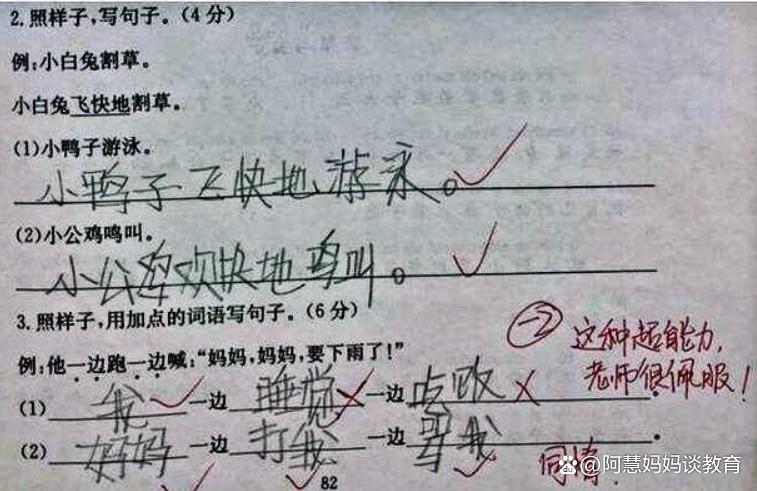 2.照样子,写句子。(4分)
例:小白兔割草。
小白兔飞快地割草。
(1)小鸭子游泳。
小鸭子飞快地游泳。
(2)小公鸡鸣叫。
小公鸡欢快地鸣叫。
3.照样子,用加点的词语写句子。(6分)
-2 这种超能力,
老师很佩服!
例:他一边跑一边喊:“妈妈,妈妈,要下雨了!”
(1) 我 一边 睡觉 一边 。
(2) 妈妈 一边 打我 一边 骂我 。
同情
82
@阿慧妈妈谈教育